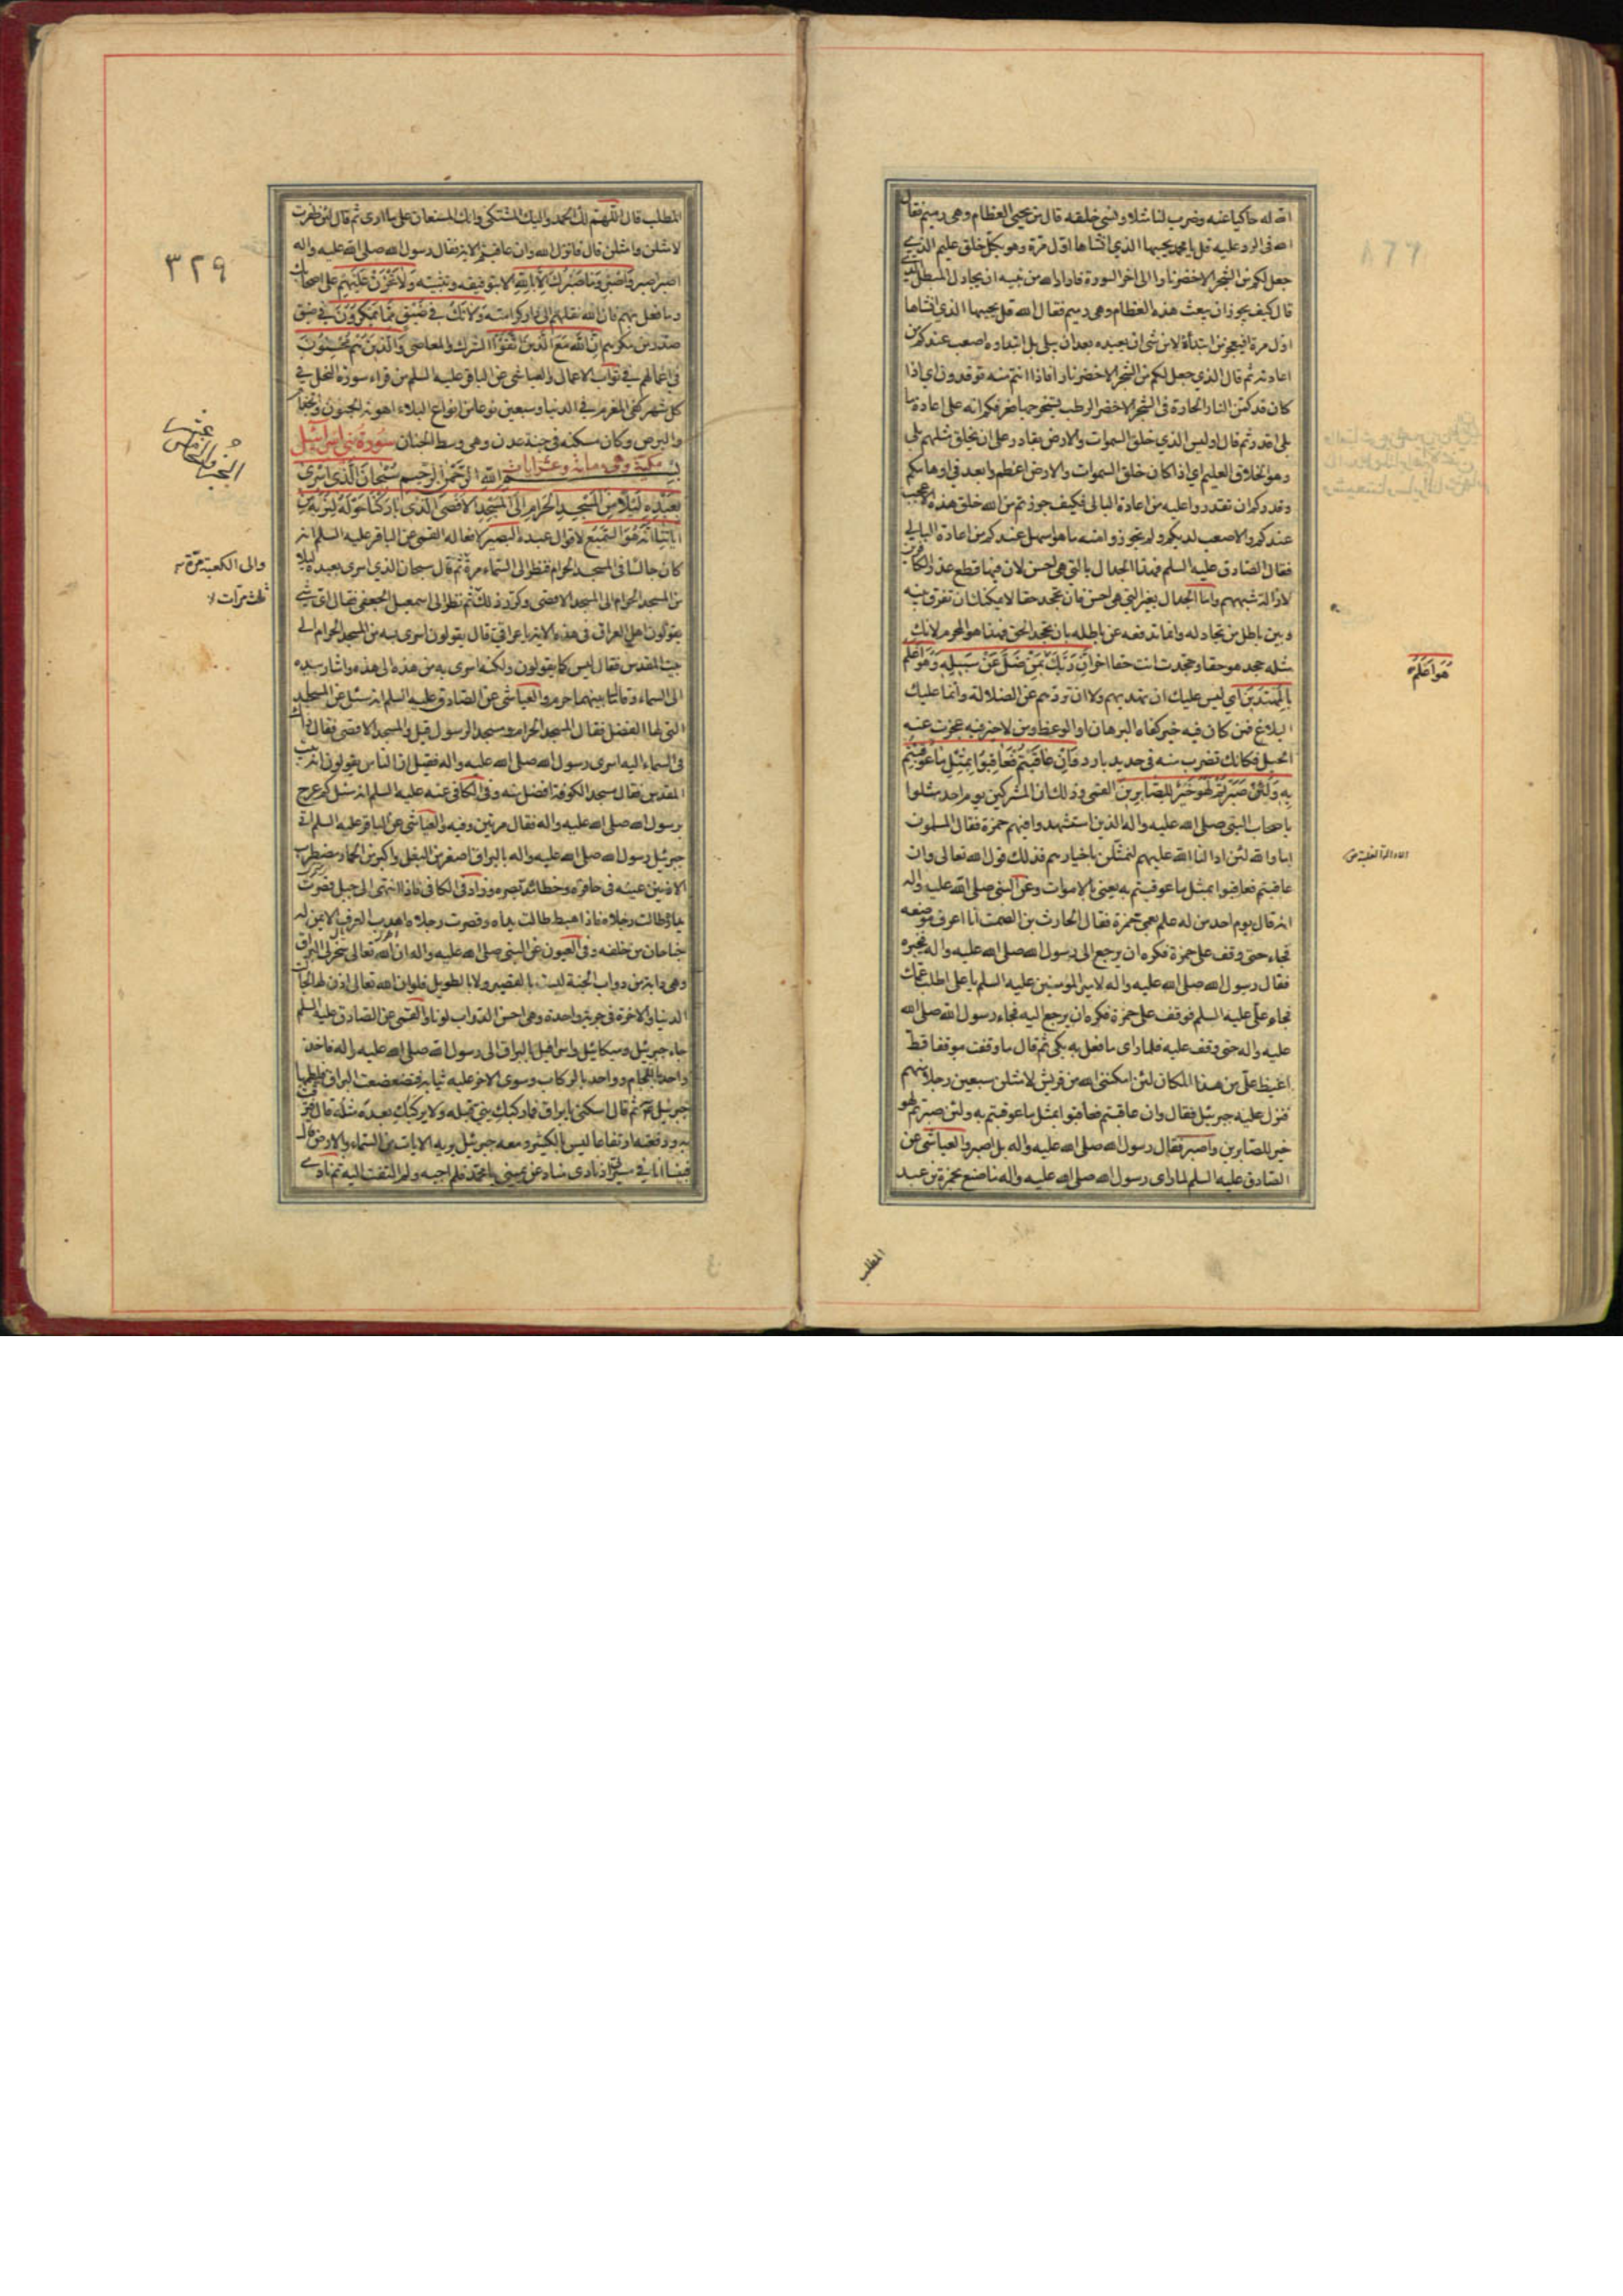 الله له حاكيا عنه وضرب لنا مثلا ونسي خلقه قال من يحيي العظام وهي رميم فقال
الله في الرد عليه قل يا محمد يحييها الذي انشاها اول مرة وهو بكل خلق عليم الذي
جعل لكم من الشجر الاخضر نارا الى اخر السورة فاراد الله من نبيه ان يجادل المبطل الذي
قال كيف يجوز ان يبعث هذه العظام وهي رميم فقال الله قل يحييها الذي انشاها
اول مرة افيعجز من ابتدأه لا من شئ ان يعيده بعد ان يبلى بل ابتداوه اصعب عندكم من
اعادته ثم قال الذي جعل لكم من الشجر الاخضر نارا فاذا انتم منه توقدون اي اذا
كان قد كمن النار الحارة في الشجر الاخضر الرطب يستخرجها فعرفكم انه على اعادة ما
بلى اقدر ثم قال اوليس الذي خلق السموات والارض بقادر على ان يخلق مثلهم بلى
وهو الخلاق العليم اي اذا كان خلق السموات والارض اعظم وابعد في اوهامكم
وقدركم ان تقدروا عليه من اعادة البالي فكيف جوزتم من الله خلق هذه الاعجب
عندكم والاصعب لديكم ولم تجوزوا منه ما هو اسهل عندكم من اعادة البالي
فقال الصادق عليه السلم فهذا الجدال بالتي هي احسن لان فيها قطع عذر الكافرين
وازالة شبههم واما الجدال بغير التي هي احسن فان تجحد حقا لا يمكنك ان تفرق بينه
وبين باطل من تجادله وانما تدفعه عن باطله بان تجحد الحق فهذا هو المحرم لانك
مثله جحد هو حقا وجحدت انت حقا اخر ان ربك بمن ضل عن سبيله وهو اعلم
بالمهتدين اي ليس عليك ان تهديهم ولا ان تردهم عن الضلالة وانما عليك
البلاغ فمن كان فيه خير كفاه البرهان او الوعظ ومن لا خير فيه عجزت عنه
الحيل فكانك تضرب منه في حديد بارد فان عاقبتم فعاقبوا بمثل ما عوقبتم
به ولئن صبرتم لهو خير للصابرين القمي وذلك ان المشركين يوم احد مثلوا
باصحاب النبي صلى الله عليه واله الذين استشهدوا فيهم حمزة فقال المسلمون
اما والله لئن ادالنا الله عليهم لنمثلن باخيارهم فذلك قول الله تعالى وان
عاقبتم فعاقبوا بمثل ما عوقبتم به يعني بالاموات وعن النبي صلى الله عليه واله
انه قال يوم احد من له علم بعمي حمزة فقال الحارث بن الصمت انا اعرف موضعه
فجاء حتى وقف على حمزة فكره ان يرجع الى رسول الله صلى الله عليه واله فيخبره
فقال رسول الله صلى الله عليه واله لامير المؤمنين عليه السلم يا علي اطلب عمك
فجاء علي عليه السلم فوقف على حمزة فكره ان يرجع اليه فجاء رسول الله صلى الله
عليه واله حتى وقف عليه فلما راى ما فعل به بكى ثم قال ما وقفت موقفا قط
اغيظ علي من هذا المكان لئن امكنني الله من قريش لامثلن سبعين رجلا منهم
فنزل عليه جبرئيل فقال وان عاقبتم فعاقبوا بمثل ما عوقبتم به ولئن صبرتم لهو
خير للصابرين واصبر فقال رسول الله صلى الله عليه واله بل اصبر والعياشي عن
الصادق عليه السلم لما راى رسول الله صلى الله عليه واله ما صنع بحمزة بن عبد
المطلب
هو اعلم
٣٢٩
المطلب قال اللهم لك الحمد واليك المشتكى وانك المستعان على ما ارى ثم قال لئن ظفرت
لامثلن وامثلن قال فانزل الله وان عاقبتم الاية فقال رسول الله صلى الله عليه واله
اصبر اصبر واصبر وما صبرك الا بالله الا بتوفيقه وتثبيته ولا تحزن عليهم على اصحابك
وما فعل بهم فان الله نقلهم الى دار كرامته ولا تك في ضيق مما يمكرون في ضيق
صدر من مكرهم ان الله مع الذين اتقوا الشرك والمعاصي والذين هم محسنون
في اعمالهم في ثواب الاعمال والعياشي عن الباقر عليه السلم من قراء سورة النحل في
كل شهر كفى المغرم في الدنيا وسبعين نوعا من انواع البلاء اهونه الجنون والجذام
والبرص وكان مسكنه في جنة عدن وهي وسط الجنان سورة بني اسرائيل
مكية وهي مائة وعشر ايات بسم الله الرحمن الرحيم سبحان الذي اسرى
بعبده ليلا من المسجد الحرام الى المسجد الاقصى الذي باركنا حوله لنريه من
اياتنا انه هو السميع لاقوال عبده البصير لافعاله القمي عن الباقر عليه السلم انه
كان جالسا في المسجد الحرام فنظر الى السماء مرة ثم قال سبحان الذي اسرى بعبده ليلا
من المسجد الحرام الى المسجد الاقصى وكرر ذلك ثم نظر الى اسمعيل الجعفي فقال اي شئ
يقولون اهل العراق في هذه الاية يا عراقي قال يقولون اسرى به من المسجد الحرام الى
بيت المقدس فقال ليس كما يقولون ولكنه اسرى به من هذه الى هذه واشار بيده
الى السماء وقال ما بينهما حرم والعياشي عن الصادق عليه السلم انه سئل عن المساجد
التي لها الفضل فقال المسجد الحرام ومسجد الرسول قيل والمسجد الاقصى فقال ذاك
في السماء اليه اسرى رسول الله صلى الله عليه واله فقيل ان الناس يقولون انه بيت
المقدس فقال مسجد الكوفة افضل منه وفي الكافي عنه عليه السلم انه سئل كم عرج
برسول الله صلى الله عليه واله فقال مرتين وفيه والعياشي عن الباقر عليه السلم اتى
جبرئيل رسول الله صلى الله عليه واله بالبراق اصغر من البغل واكبر من الحمار مضطرب
الاذنين عينيه في حافره وخطاه مد بصره وزاد في الكافي فاذا انتهى الى جبل قصرت
يداه وطالت رجلاه فاذا هبط طالت يداه وقصرت رجلاه اهدب العرف الايمن له
جناحان من خلفه وفي العيون عن النبي صلى الله عليه واله ان الله تعالى سخر لي البراق
وهي دابة من دواب الجنة ليست بالقصير ولا بالطويل فلو ان الله تعالى اذن لها لجالت
الدنيا والاخرة في جرية واحدة وهي احسن الدواب لونا والقمي عن الصادق عليه السلم
جاء جبرئيل وميكائيل واسرافيل بالبراق الى رسول الله صلى الله عليه واله فاخذ
واحد باللجام وواحد بالركاب وسوى الاخر عليه ثيابه فتضعضعت البراق فلطمها
جبرئيل ثم قال اسكني يا براق فما ركبك نبي قبله ولا يركبك بعده مثله قال
به ورفعته ارتفاعا ليس بالكثير ومعه جبرئيل يريه الايات من السماء والارض قال
فبينا انا في مسيري اذ نادى مناد عن يميني يا محمد فلم اجبه ولم التفت اليه ثم نادى
الجزو الخامس عشر
والى الكعبة مرة
ثلث مرات